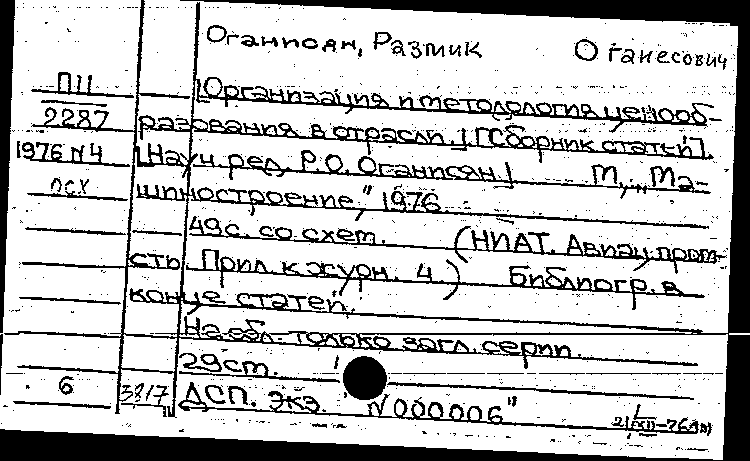 Оганисян, Размик Оганесович
П11 [Организация и методология ценооб-
2287 разования в отрасли.] [Сборник статей].
1976 N4 [Науч. ред. Р.О. Оганисян.] М., "Ма-
псх шиностроение," 1976.
49с. со схем. (НИАТ. Авиац. пром-
сть. Прил. к журн. 4.) Библиогр. в
конце статей.
На обл. только загл. серии.
29см.
6 3817 ДСП. Экз. "N000006"